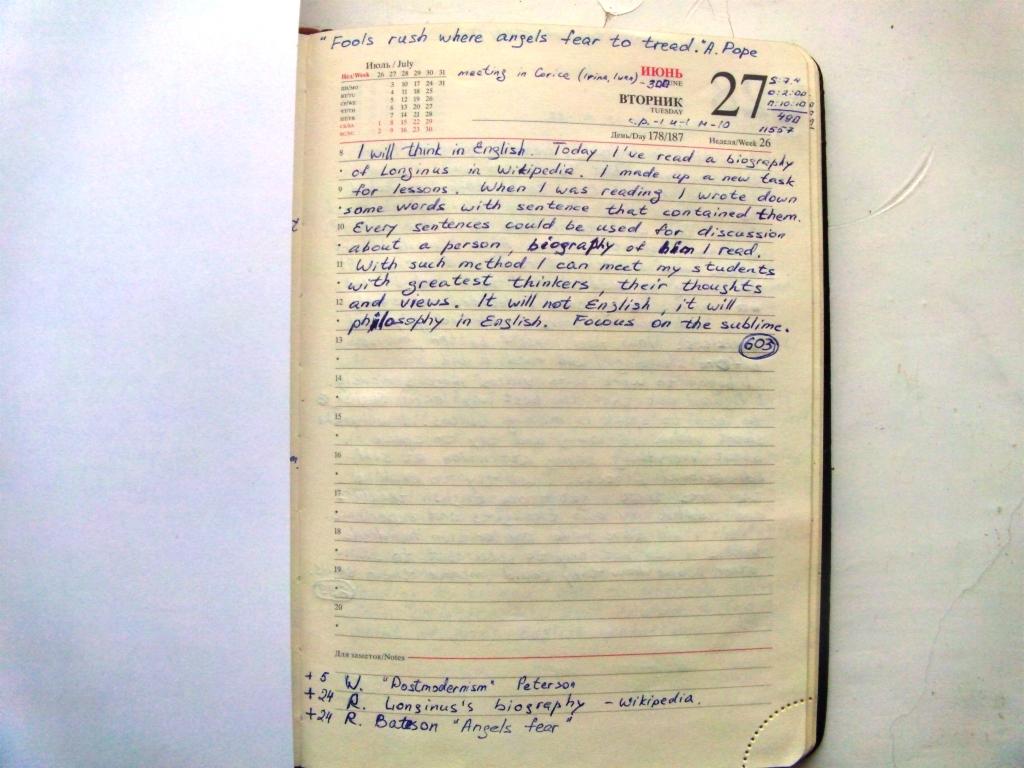 "Fools rush where angels fear to tread." A. Pope
Июль / July
Нед/Week 26 27 28 29 30 31
ПН/MO 3 10 17 24 31
ВТ/TU 4 11 18 25
СР/WE 5 12 19 26
ЧТ/TH 6 13 20 27
ПТ/FR 7 14 21 28
СБ/SA 1 8 15 22 29
ВС/SU 2 9 16 23 30
meeting in (Irina, Ivan) - 300
ИЮНЬ
JUNE
ВТОРНИК
TUESDAY
27
S: 7.4
0: 2:00
П: 10:10
490
11557
с.р.-1 и-1 м-10
День/Day 178/187 Неделя/Week 26
8 I will think in English. Today I've read a biography
of Longinus in Wikipedia. I made up a new task
9 for lessons. When I was reading I wrote down
some words with sentence that contained them.
10 Every sentences could be used for discussion
about a person, biography of him I read.
11 With such method I can meet my students
with greatest thinkers, their thoughts
12 and views. It will not English, it will
philosophy in English. Focous on the sublime.
13
603
14
15
16
17
18
19
20
Для заметок/Notes
+ 5 W. "Postmodernism" Peterson
+24 R. Longinus's biography - Wikipedia.
+24 R. Bateson "Angels fear"